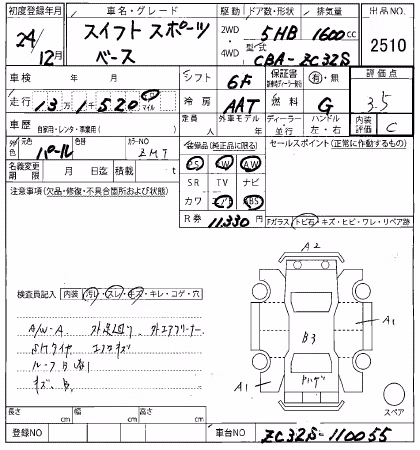 初度登録年月 車名・グレード 駆動 ドア数・形状 排気量 出品NO.
24/12月 スイフト スポーツ 2WD 5HB 1600cc
ベース 4WD 型式 CBA-ZC32S 2510
車検 年 月 シフト 6F 保証書 有・無 評価点
走行 13万1千520 km マイル 冷房 AAT 燃料 G 3.5
車歴 自家用・レンタ・事業用( ) 定員 人 外車モデル 年 ディーラー・並行 ハンドル 左・右 内装評価 C
外色 元色 パール 色替 カラーNO ZMT 装備品(純正品に限る) セールスポイント(正常に作動するもの)
名義変更期限 月 日迄 積載 t PS PW AW
注意事項(欠品・修復・不具合箇所および状態) SR TV ナビ
カワ エアB ABS
R券 11330円 Fガラス・トビ石・キズ・ヒビ・ワレ・リペア跡
A2
検査員記入 内装 汚レ・スレ・キズ・キレ・コゲ・穴
A/W-A 外エアクリーナー
A1
B3
エアロキズ
A1
キズ、B、
スペア
長さ cm 幅 cm 高さ cm
登録NO 車台NO ZC32S-110055